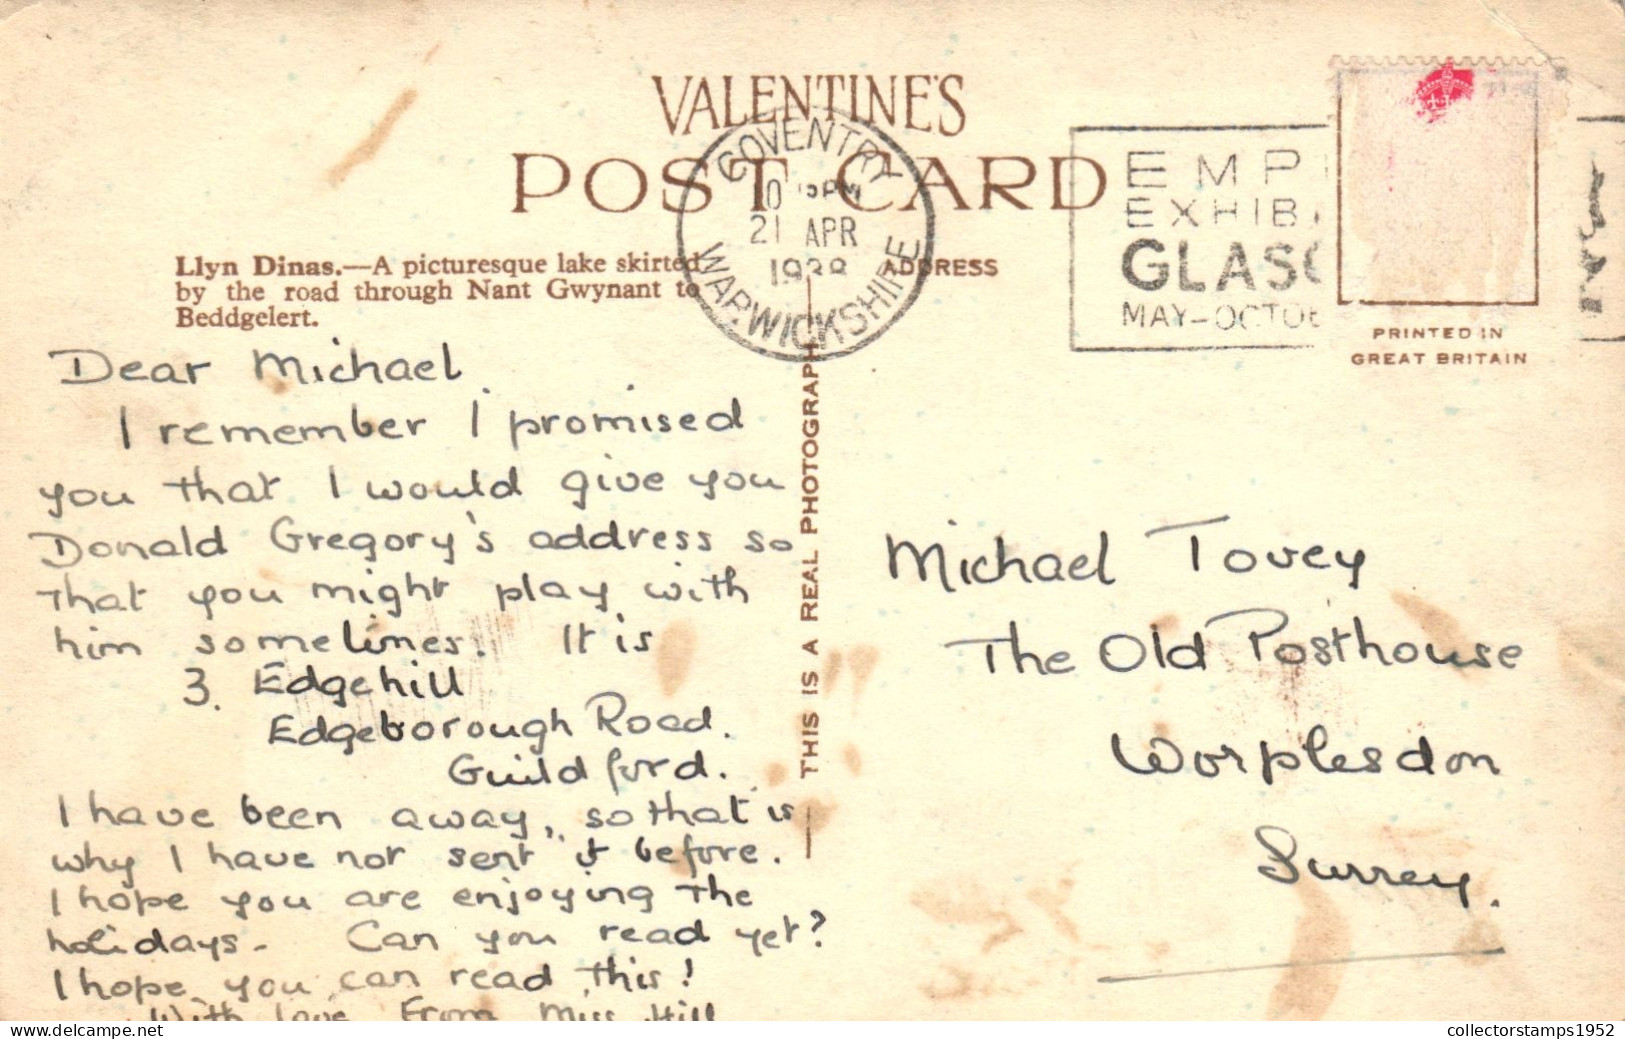 VALENTINE'S
POST CARD
COVENTRY
PM
21 APR
1938
WARWICKSHIRE
EMP
EXHIB
GLASG
MAY-OCTOB
Llyn Dinas.—A picturesque lake skirted
by the road through Nant Gwynant to
Beddgelert.
ADDRESS
PRINTED IN
GREAT BRITAIN
Dear Michael
I remember I promised
you that I would give you
Donald Gregory's address so
that you might play with
him sometimes. It is
3. Edgehill
Edgeborough Road.
Guildford.
I have been away, so that is
why I have not sent it before.
I hope you are enjoying the
holidays. Can you read yet?
I hope you can read this!
With love From Miss Hill
THIS IS A REAL PHOTOGRAPH
Michael Tovey
The Old Posthouse
Worplesdon
Surrey.
www.delcampe.net
collectorstamps1952